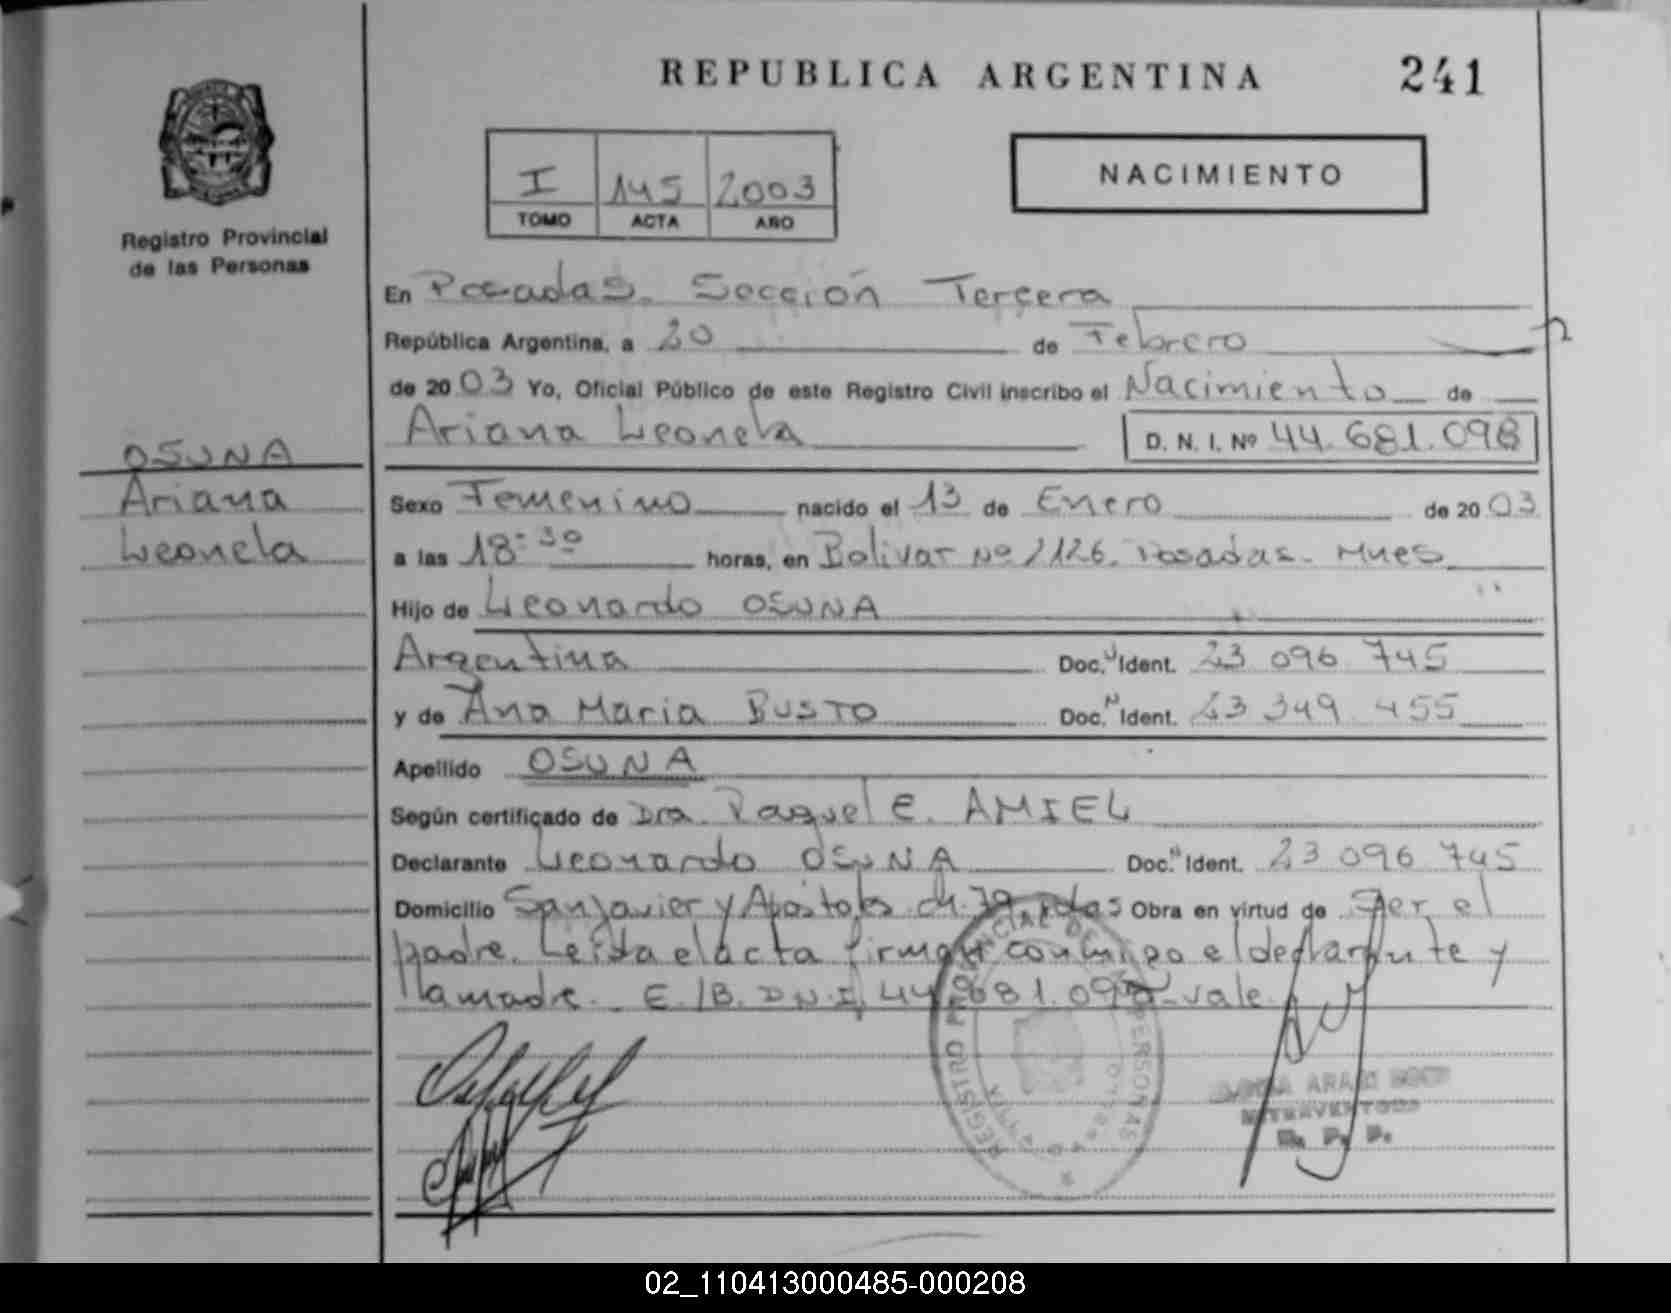 REPUBLICA ARGENTINA 241
I 145 2003
TOMO ACTA AÑO
NACIMIENTO
Registro Provincial
de las Personas
OSUNA
Ariana
Leonela
En Posadas. Sección Tercera
República Argentina, a 20 de Febrero
de 2003 Yo, Oficial Público de este Registro Civil inscribo el Nacimiento de
Ariana Leonela D. N. I. Nº 44.681.098
Sexo Femenino nacido el 13 de Enero de 2003
a las 18:30 horas, en Bolivar Nº 2126. Posadas. Mnes
Hijo de Leonardo OSUNA
Argentina Doc. Ident. 23 096 745
y de Ana Maria BUSTO Doc. Ident. 23 349 455
Apellido OSUNA
Según certificado de Dra. Raquel E. AMIEL
Declarante Leonardo OSUNA Doc. Ident. 23 096 745
Domicilio San Javier y Apóstoles Obra en virtud de Ser el
padre. Leída el acta firman conmigo el declarante y
la madre. E./B. D.N.I. 44.681.098 vale.
REGISTRO PROVINCIAL DE LAS PERSONAS
INTERVENTORA
R. P. P.
02_110413000485-000208